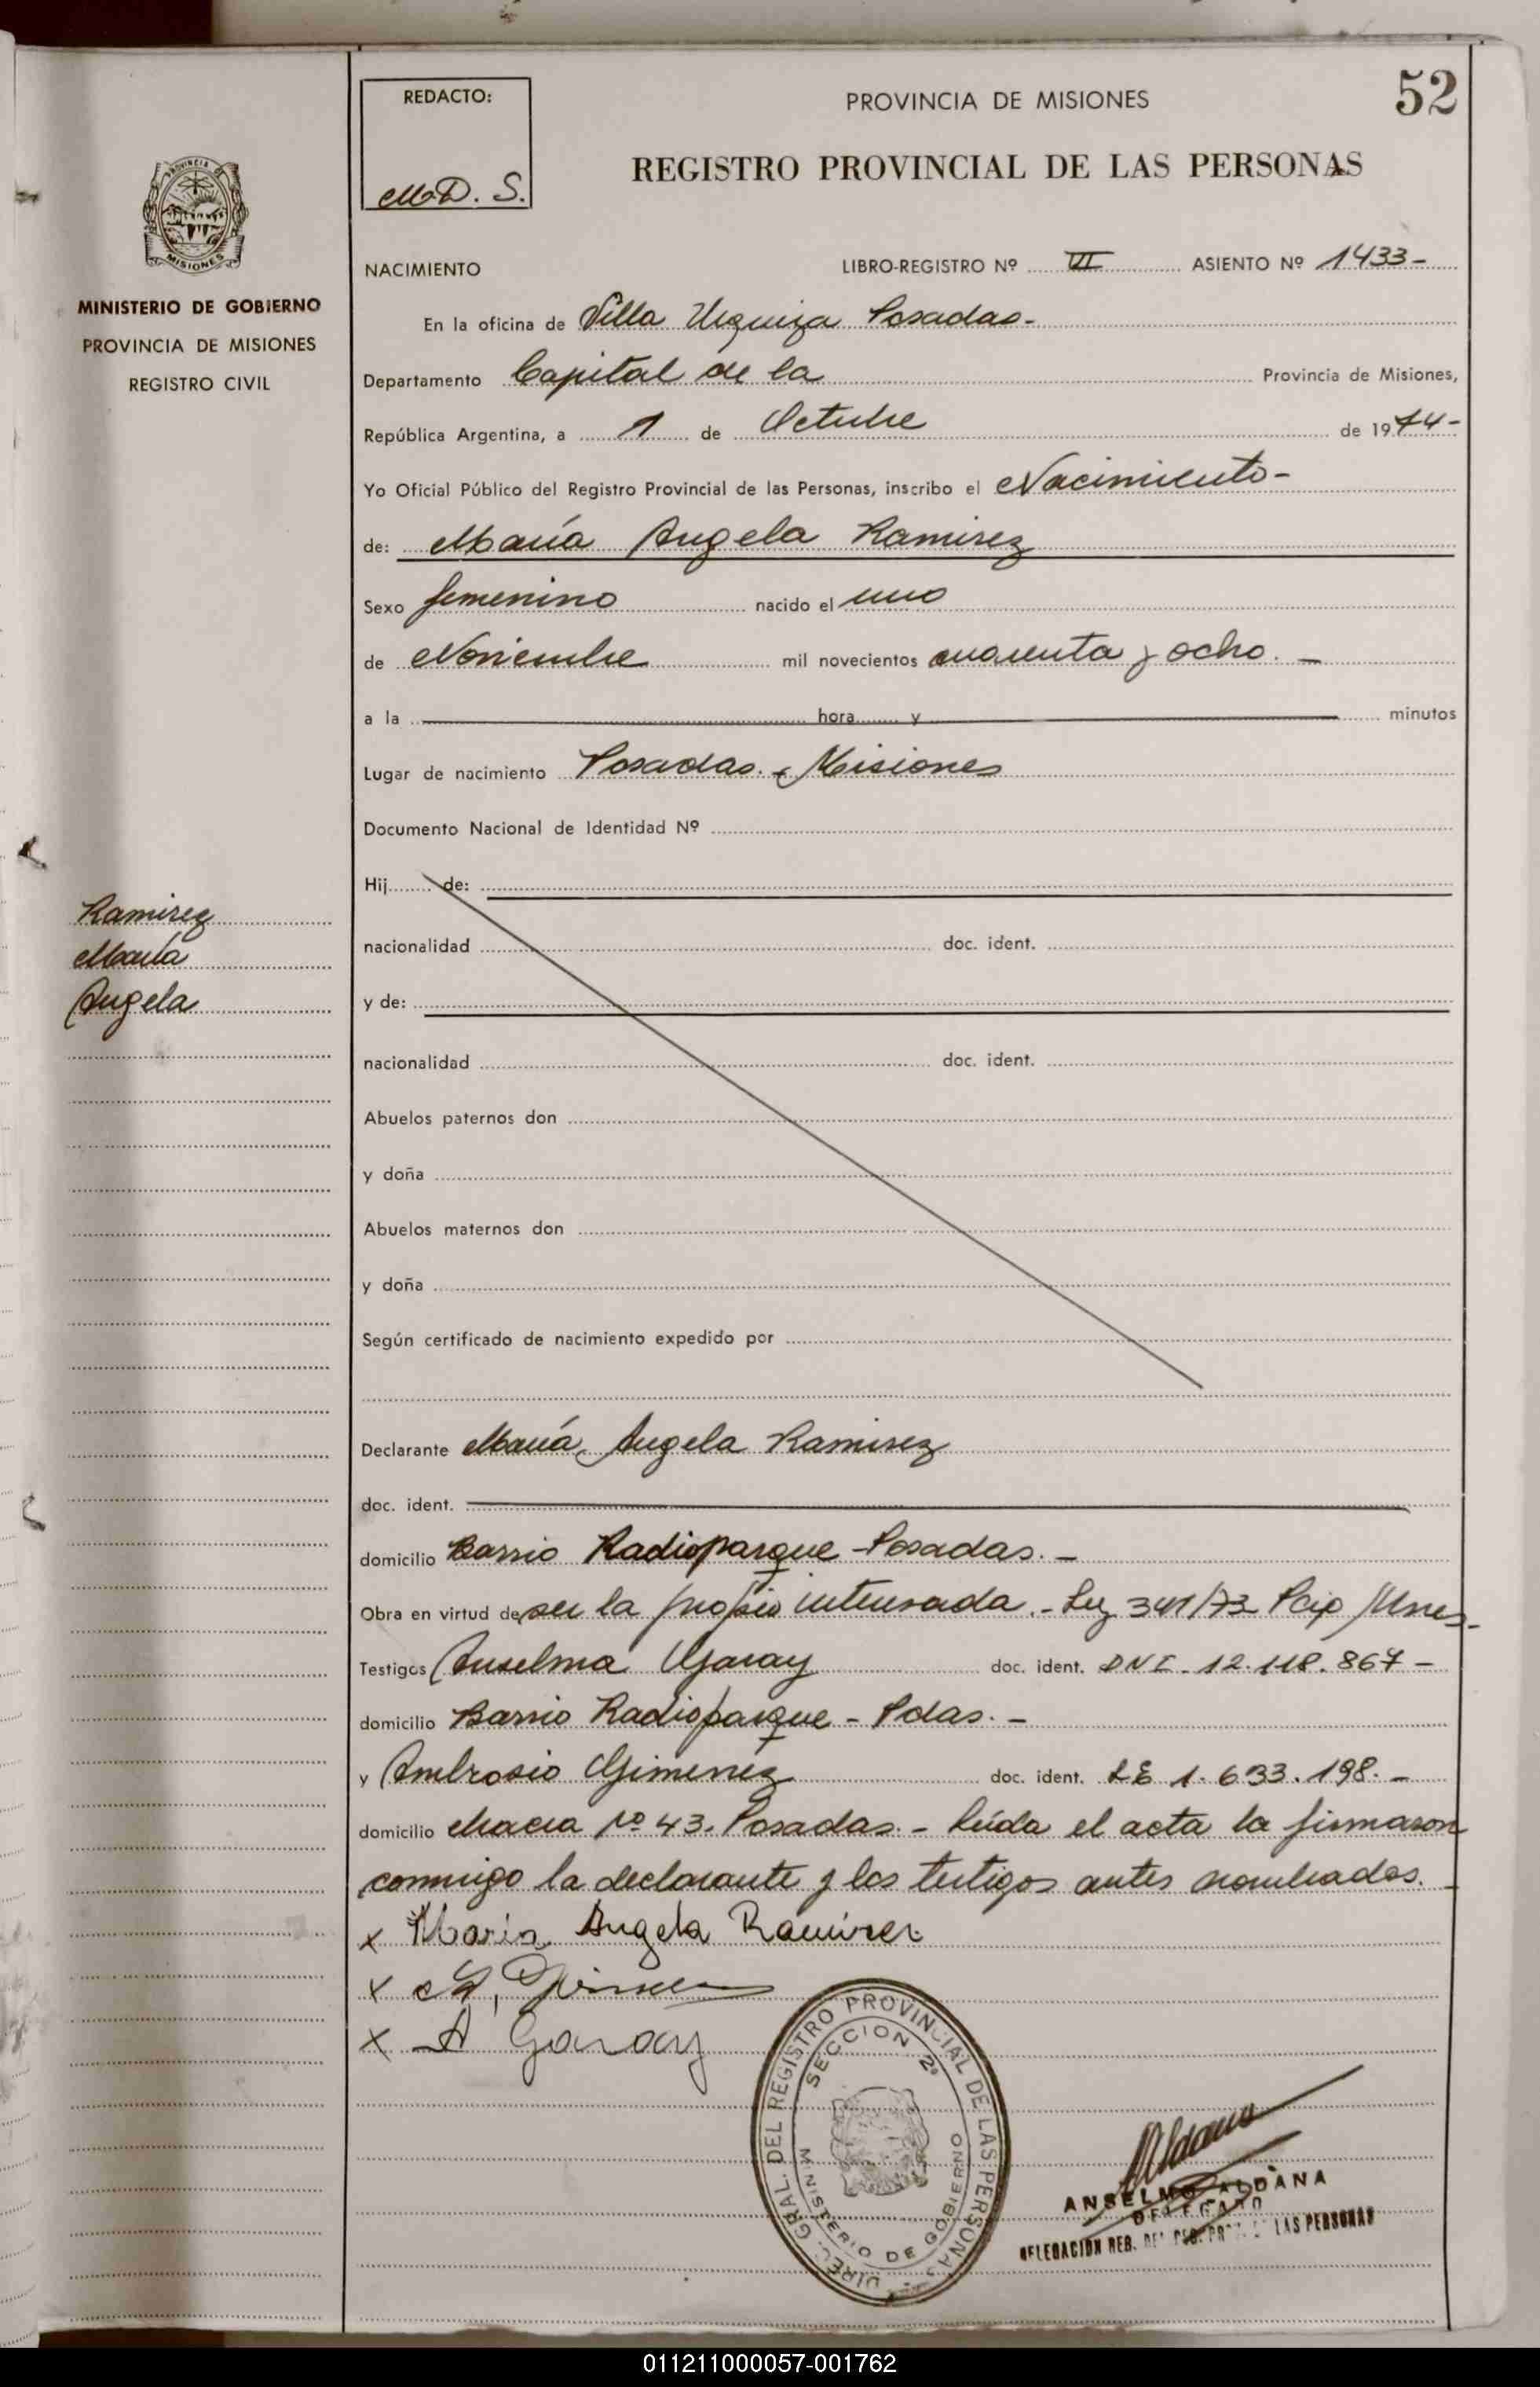 52
REDACTO:
M.D. S.
PROVINCIA DE MISIONES
REGISTRO PROVINCIAL DE LAS PERSONAS
PROVINCIA
MISIONES
MINISTERIO DE GOBIERNO
PROVINCIA DE MISIONES
REGISTRO CIVIL
Ramirez
María
Angela
NACIMIENTO LIBRO-REGISTRO Nº VI ASIENTO Nº 1433-
En la oficina de Villa Urquiza Posadas-
Departamento Capital de la Provincia de Misiones,
República Argentina, a 1 de Octubre de 1974-
Yo Oficial Público del Registro Provincial de las Personas, inscribo el Nacimiento-
de: María Angela Ramirez
Sexo femenino nacido el uno
de Noviembre mil novecientos cuarenta y ocho. -
a la hora y minutos
Lugar de nacimiento Posadas. - Misiones
Documento Nacional de Identidad Nº
Hij de:
nacionalidad doc. ident.
y de:
nacionalidad doc. ident.
Abuelos paternos don
y doña
Abuelos maternos don
y doña
Según certificado de nacimiento expedido por
Declarante María Angela Ramirez
doc. ident.
domicilio Barrio Radioparque - Posadas. -
Obra en virtud de ser la propia interesada. - Ley 341/73
Testigos Anselma Garay doc. ident. DNI - 12.118.867 -
domicilio Barrio Radioparque - Pdas. -
y Ambrosio Gimenez doc. ident. LE 1.633.198. -
domicilio Nº 43. Posadas. - Leída el acta la firmaron
conmigo la declarante y los testigos antes nombrados.
x María Angela Ramirez
x A. Gimenez
x A Garay
DIREC. GRAL. DEL REGISTRO PROVINCIAL DE LAS PERSONAS
SECCION 2ª
MINISTERIO DE GOBIERNO
ANSELMO ALDANA
DELEGADO
DELEGACION REG. DEL REG. PROV. DE LAS PERSONAS
011211000057-001762